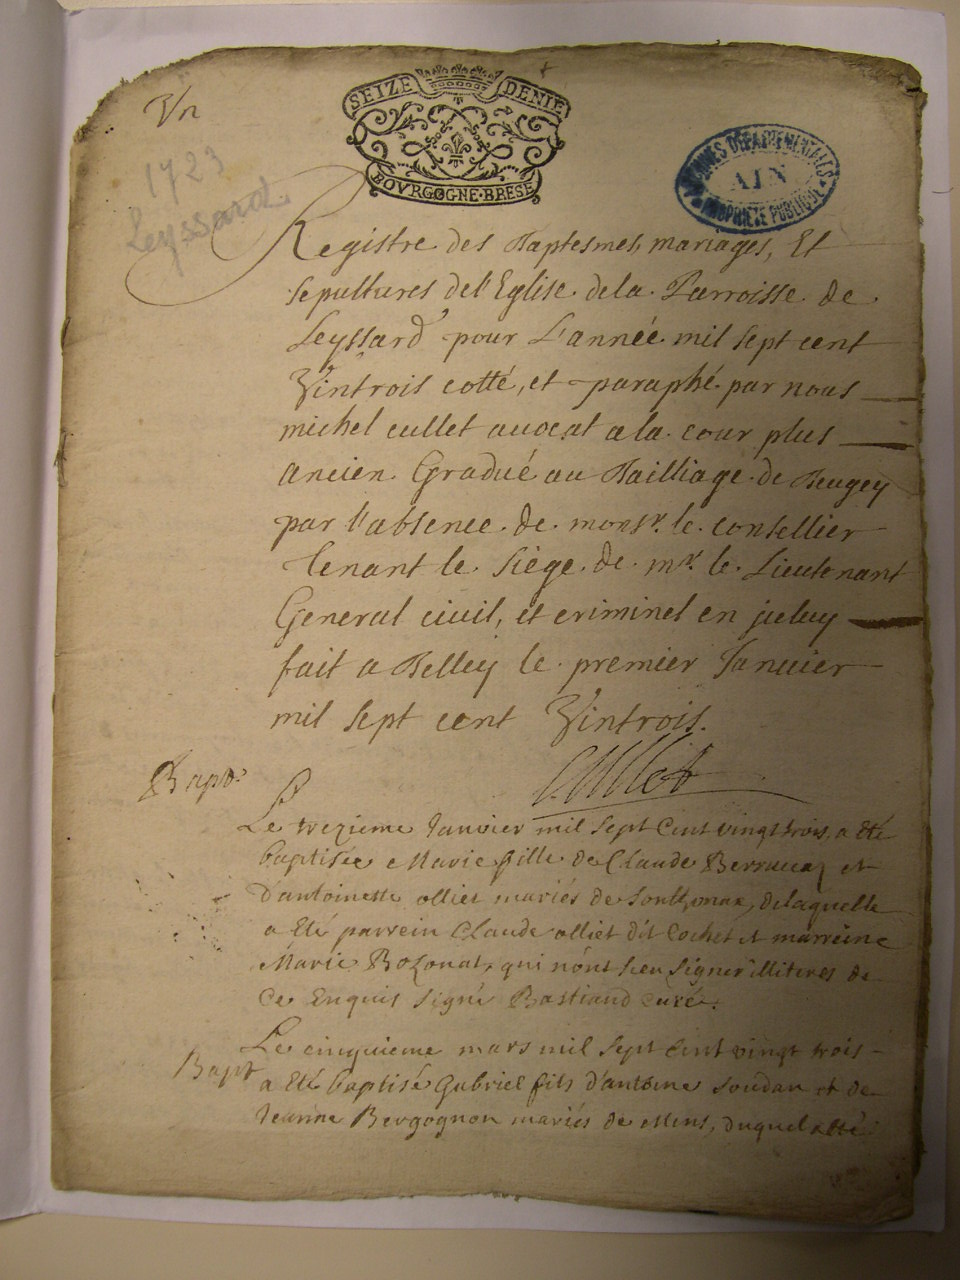 Un
SEIZE DENIE
BOVRGOGNE·BRESE
ARCHIVES DEPARTEMENTALES
AIN
PROPRIETE PUBLIQUE
1723
Leyssard
Registre des Baptesmes, mariages, Et
sepultures de l'Eglise de la Parroisse de
Leyssard pour L'année mil sept cent
Vintrois cotté, et paraphé par nous
michel cullet auocat a la cour plus
ancien Gradué au Bailliage de Beugey
par l'absence de monsr. le consellier
tenant le siège de mr. le Lieutenant
General ciuil, et criminel en jceluy
fait a Belley le premier Januier
mil sept cent Vintrois.
Cullet
Bapt.
Le trezieme Janvier mil sept Cent vingt trois, a été
baptisée Marie fille de Claude et
D'antoinette olliet mariés de Sonthonax, de laquelle
a Eté parrein Claude olliet dit Cochet et marreine
Marie Bozonat, qui n'ont sceu signer illiteres de
Ce Enquis signé Bastiand curé.
Bapt
Le cinquieme mars mil sept Cent vingt trois
a Eté baptisé Gabriel fils d'antoine Soudan et de
Jeanne Bergognon mariés de duquel a été